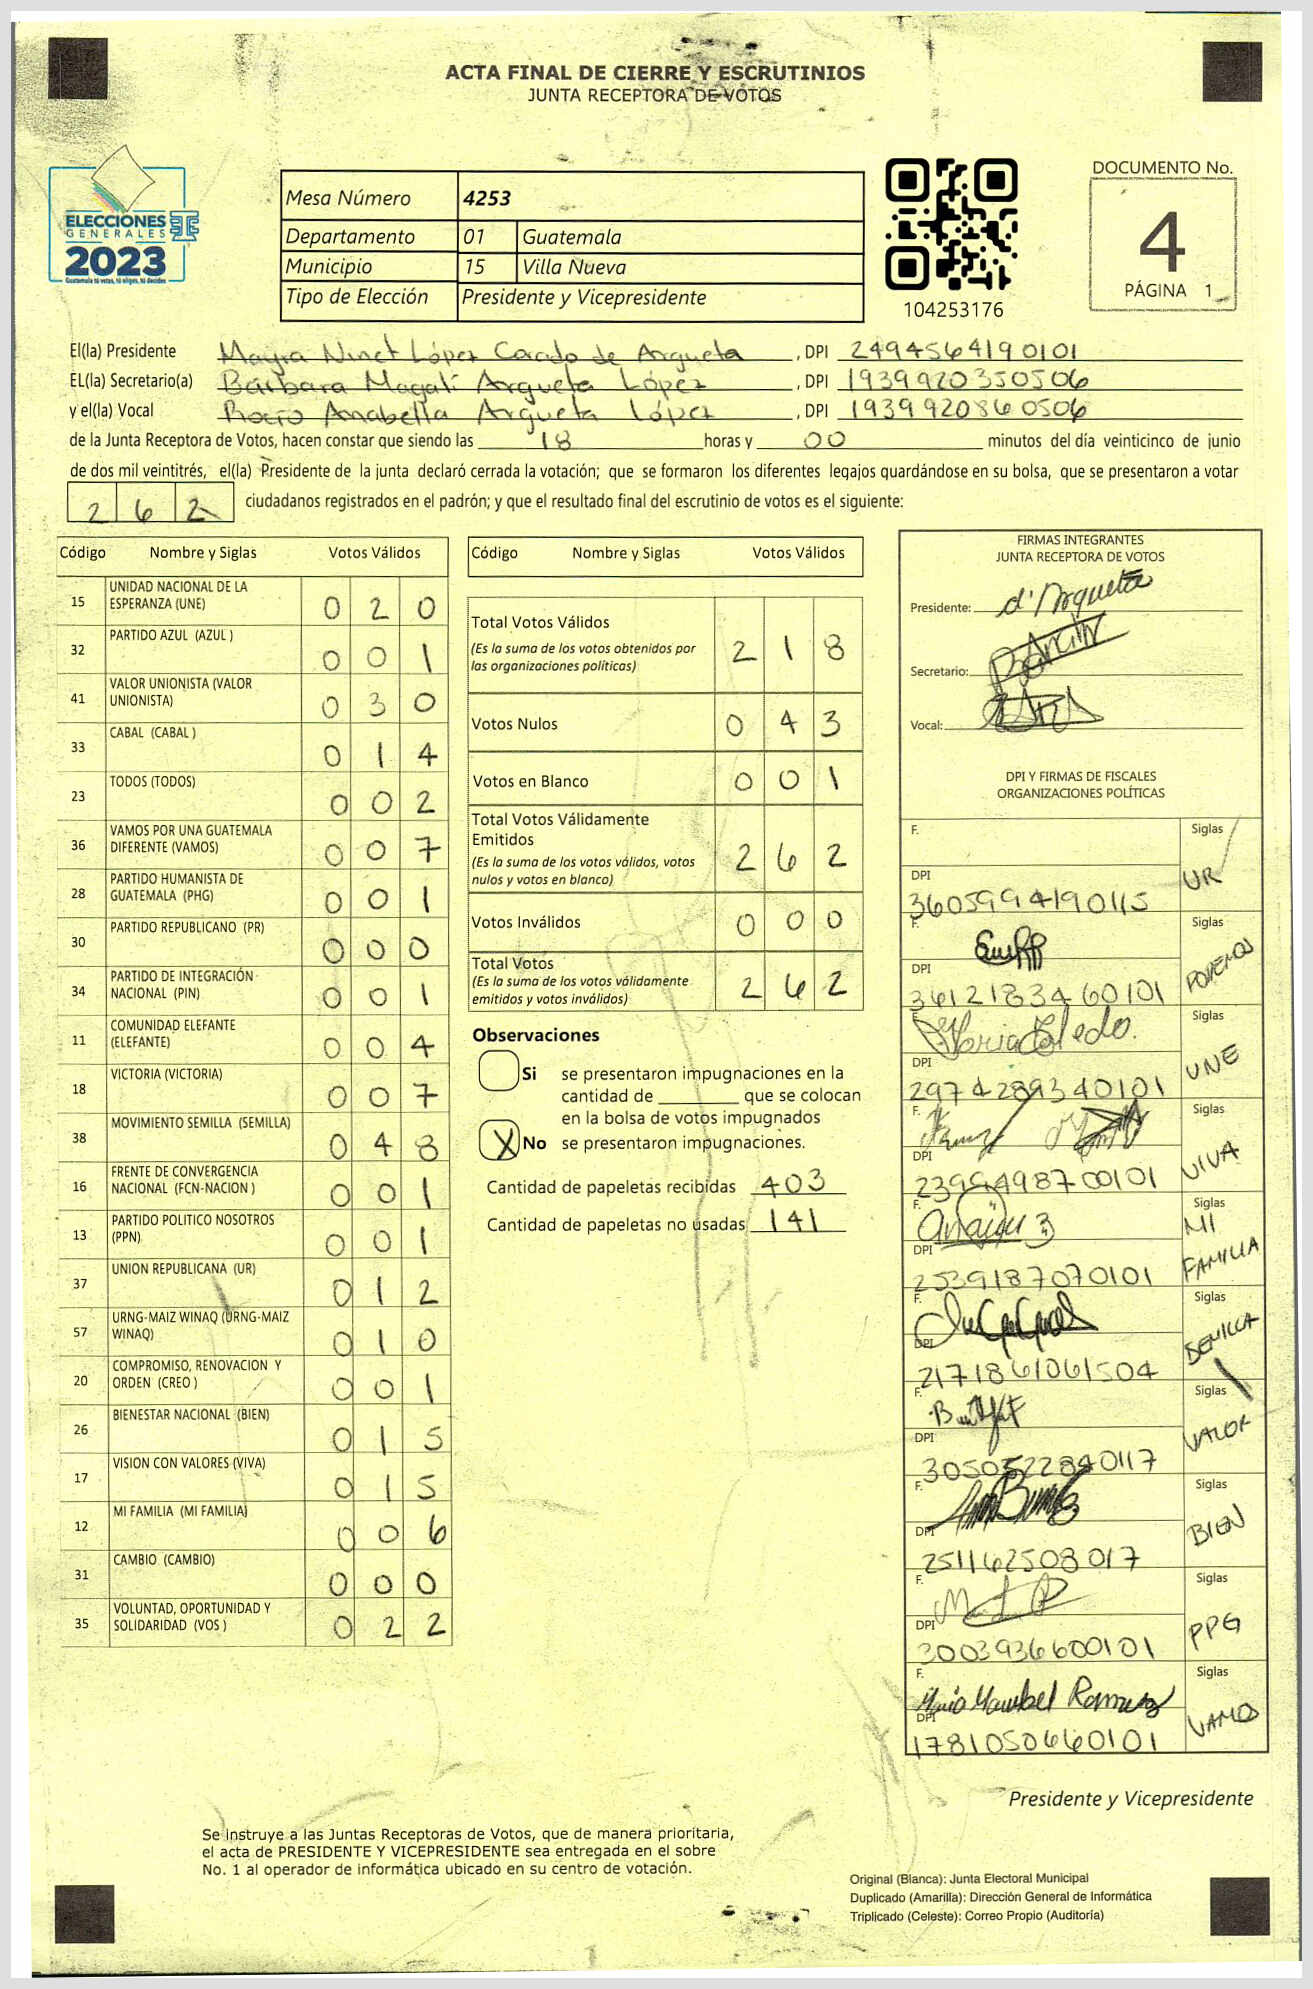 ACTA FINAL DE CIERRE Y ESCRUTINIOS
JUNTA RECEPTORA DE VOTOS
ELECCIONES
GENERALES
2023
Guatemala tú votas, tú eliges, tú decides
Mesa Número 4253
Departamento 01 Guatemala
Municipio 15 Villa Nueva
Tipo de Elección Presidente y Vicepresidente
104253176
DOCUMENTO No.
4
PÁGINA 1
El(la) Presidente Mayra Ninet López Corado de Argueta, DPI 2494564190101
EL(la) Secretario(a) Bárbara Magalí Argueta López, DPI 1939920350506
y el(la) Vocal Rocío Anabella Argueta López, DPI 1939920860506
de la Junta Receptora de Votos, hacen constar que siendo las 18 horas y 00 minutos del día veinticinco de junio
de dos mil veintitrés, el(la) Presidente de la junta declaró cerrada la votación; que se formaron los diferentes legajos guardándose en su bolsa, que se presentaron a votar
262 ciudadanos registrados en el padrón; y que el resultado final del escrutinio de votos es el siguiente:
Código Nombre y Siglas Votos Válidos
15 UNIDAD NACIONAL DE LA ESPERANZA (UNE) 0 2 0
32 PARTIDO AZUL (AZUL ) 0 0 1
41 VALOR UNIONISTA (VALOR UNIONISTA) 0 3 0
33 CABAL (CABAL ) 0 1 4
23 TODOS (TODOS) 0 0 2
36 VAMOS POR UNA GUATEMALA DIFERENTE (VAMOS) 0 0 7
28 PARTIDO HUMANISTA DE GUATEMALA (PHG) 0 0 1
30 PARTIDO REPUBLICANO (PR) 0 0 0
34 PARTIDO DE INTEGRACIÓN NACIONAL (PIN) 0 0 1
11 COMUNIDAD ELEFANTE (ELEFANTE) 0 0 4
18 VICTORIA (VICTORIA) 0 0 7
38 MOVIMIENTO SEMILLA (SEMILLA) 0 4 8
16 FRENTE DE CONVERGENCIA NACIONAL (FCN-NACION ) 0 0 1
13 PARTIDO POLITICO NOSOTROS (PPN) 0 0 1
37 UNION REPUBLICANA (UR) 0 1 2
57 URNG-MAIZ WINAQ (URNG-MAIZ WINAQ) 0 1 0
20 COMPROMISO, RENOVACION Y ORDEN (CREO ) 0 0 1
26 BIENESTAR NACIONAL (BIEN) 0 1 5
17 VISION CON VALORES (VIVA) 0 1 5
12 MI FAMILIA (MI FAMILIA) 0 0 6
31 CAMBIO (CAMBIO) 0 0 0
35 VOLUNTAD, OPORTUNIDAD Y SOLIDARIDAD (VOS ) 0 2 2
Código Nombre y Siglas Votos Válidos
Total Votos Válidos 2 1 8
(Es la suma de los votos obtenidos por
las organizaciones políticas)
Votos Nulos 0 4 3
Votos en Blanco 0 0 1
Total Votos Válidamente
Emitidos 2 6 2
(Es la suma de los votos válidos, votos
nulos y votos en blanco)
Votos Inválidos 0 0 0
Total Votos 2 6 2
(Es la suma de los votos válidamente
emitidos y votos inválidos)
Observaciones
Si se presentaron impugnaciones en la
cantidad de ________ que se colocan
en la bolsa de votos impugnados
X No se presentaron impugnaciones.
Cantidad de papeletas recibidas 403
Cantidad de papeletas no usadas 141
FIRMAS INTEGRANTES
JUNTA RECEPTORA DE VOTOS
Presidente: d'Argueta
Secretario:
Vocal:
DPI Y FIRMAS DE FISCALES
ORGANIZACIONES POLÍTICAS
F. Siglas
DPI UR
3605994190115
F. Siglas
DPI PODEMOS
3612183460101
F. María Toledo. Siglas
DPI UNE
2974289340101
F. Siglas
DPI VIVA
2399498700101
F. Siglas
DPI MI FAMILIA
2539187070101
F. Siglas
DPI SEMILLA
2171861061504
F. Siglas
DPI VALOR
3050522840117
F. Siglas
DPI BIEN
251162508017
F. Siglas
DPI PPG
3003936600101
F. María Maribel Ramirez Siglas
DPI VAMOS
1781050660101
Presidente y Vicepresidente
Se instruye a las Juntas Receptoras de Votos, que de manera prioritaria,
el acta de PRESIDENTE Y VICEPRESIDENTE sea entregada en el sobre
No. 1 al operador de informática ubicado en su centro de votación.
Original (Blanca): Junta Electoral Municipal
Duplicado (Amarilla): Dirección General de Informática
Triplicado (Celeste): Correo Propio (Auditoría)